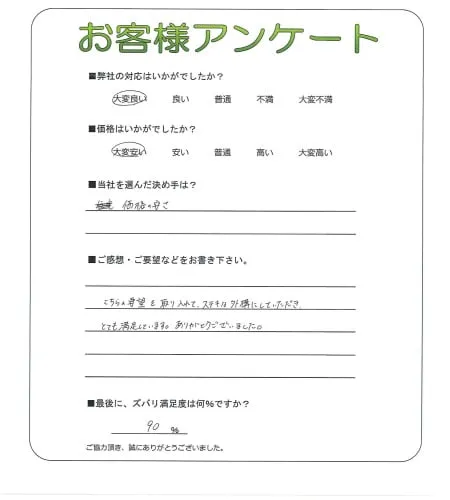 お客様アンケート
■弊社の対応はいかがでしたか？
大変良い 良い 普通 不満 大変不満
■価格はいかがでしたか？
大変安い 安い 普通 高い 大変高い
■当社を選んだ決め手は？
価格の安さ
■ご感想・ご要望などをお書き下さい。
こちらの要望を取り入れて、ステキな外構にしていただき、
とても満足しています。ありがとうございました。
■最後に、ズバリ満足度は何％ですか？
90 %
ご協力頂き、誠にありがとうございました。